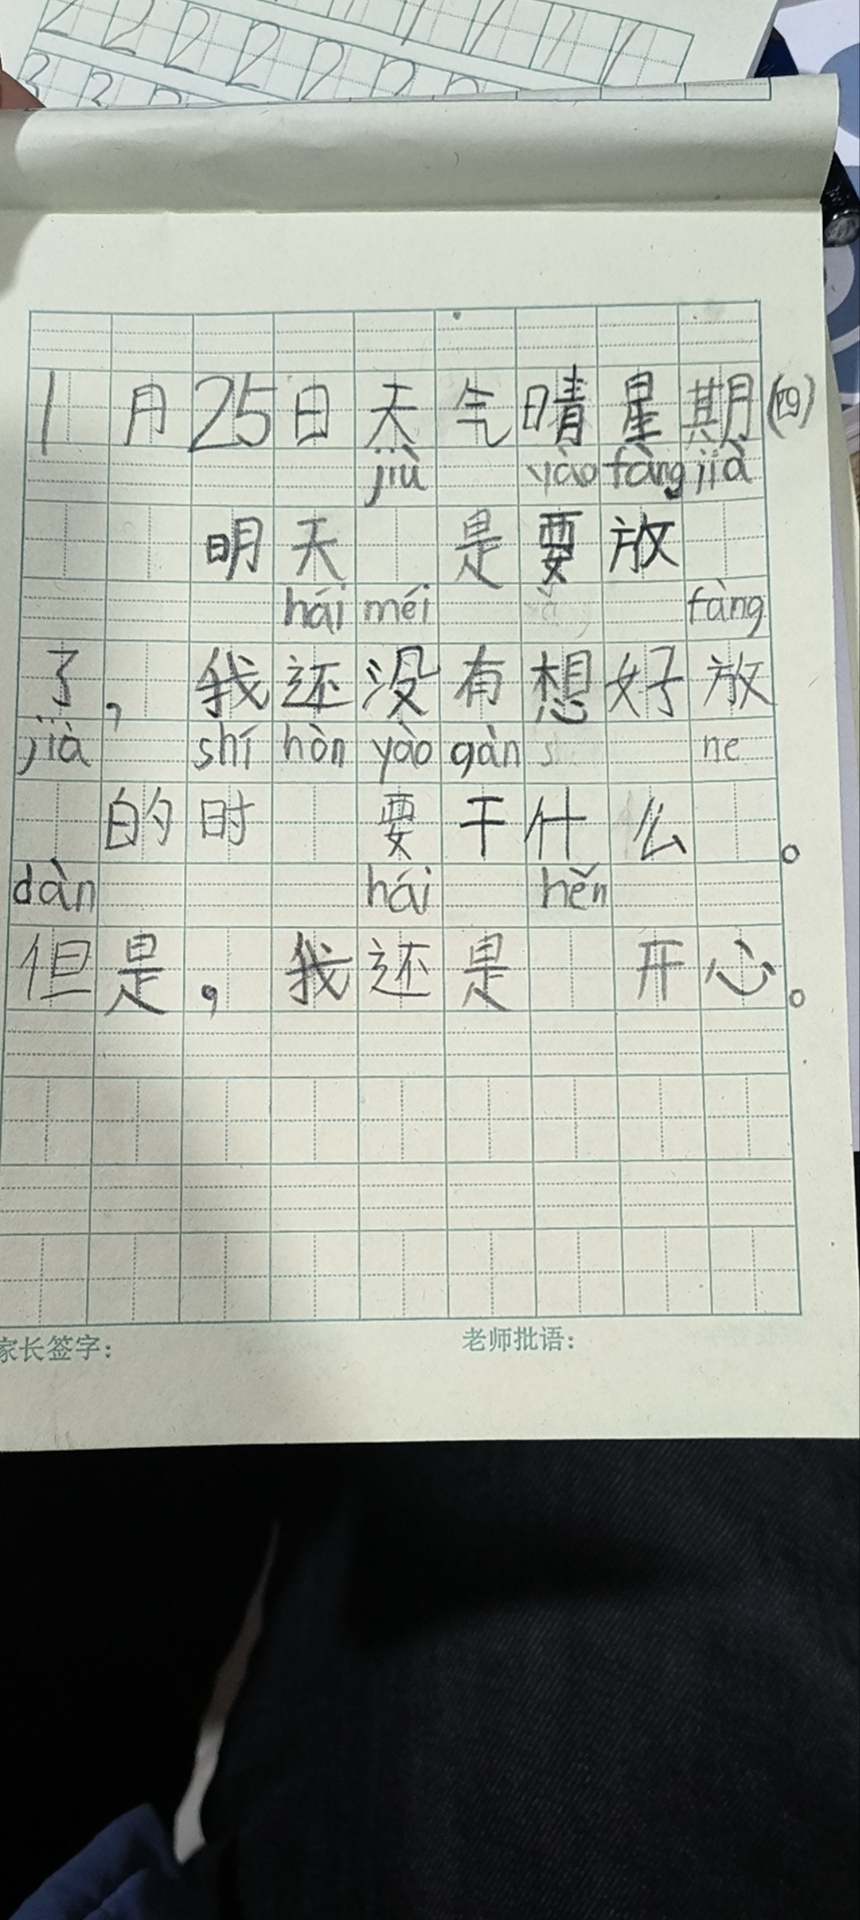 2 2 2 2 2 2 1 1 1 1
3 3
1月25日天气晴星期(四)
jiù yào fàng jià
明天 是要放
hái méi fàng
了，我还没有想好放
jià shí hòn yào gàn ne
的时 要干什么 。
dàn hái hěn
但是，我还是 开心。
家长签字： 老师批语：